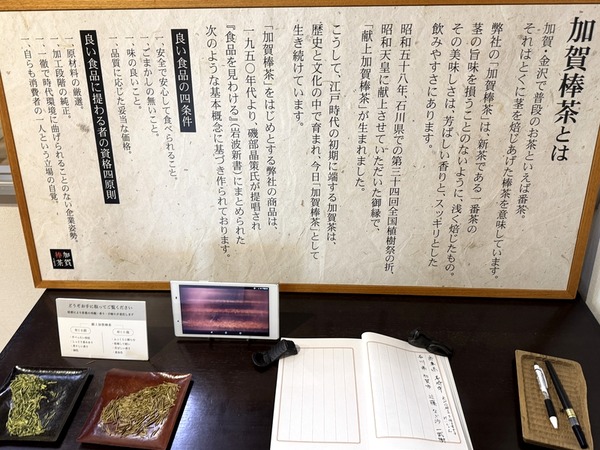 加賀棒茶とは
加賀・金沢で普段のお茶といえば番茶。
それはとくに茎を焙じあげた棒茶を意味しています。
弊社の「加賀棒茶」は、新茶である一番茶の
茎の旨味を損うことのないように、浅く焙じたもの。
その美しさは、芳ばしい香りと、スッキリとした
飲みやすさにあります。
昭和五十八年、石川県での第三十四回全国植樹祭の折、
昭和天皇に献上させていただいた御縁で、
「献上加賀棒茶」が生まれました。
こうして、江戸時代の初期に端する加賀茶は、
歴史と文化の中で育まれ、今日「加賀棒茶」として
生き続けています。
「加賀棒茶」をはじめとする弊社の商品は、
一九五〇年代より、磯部晶策氏が提唱され
『食品を見わける』(岩波新書)にまとめられた
次のような基本概念に基づき作られております。
良い食品の四条件
一、安全で安心して食べられること。
一、ごまかしの無いこと。
一、味の良いこと。
一、品質に応じた妥当な価格。
良い食品に携わる者の資格四原則
一、原材料の厳選。
一、加工段階の純正。
一、一徹で時代環境に曲げられることのない企業姿勢。
一、自らも消費者の一人という立場の自覚。
加賀棒茶
どうぞお手に取ってご覧ください